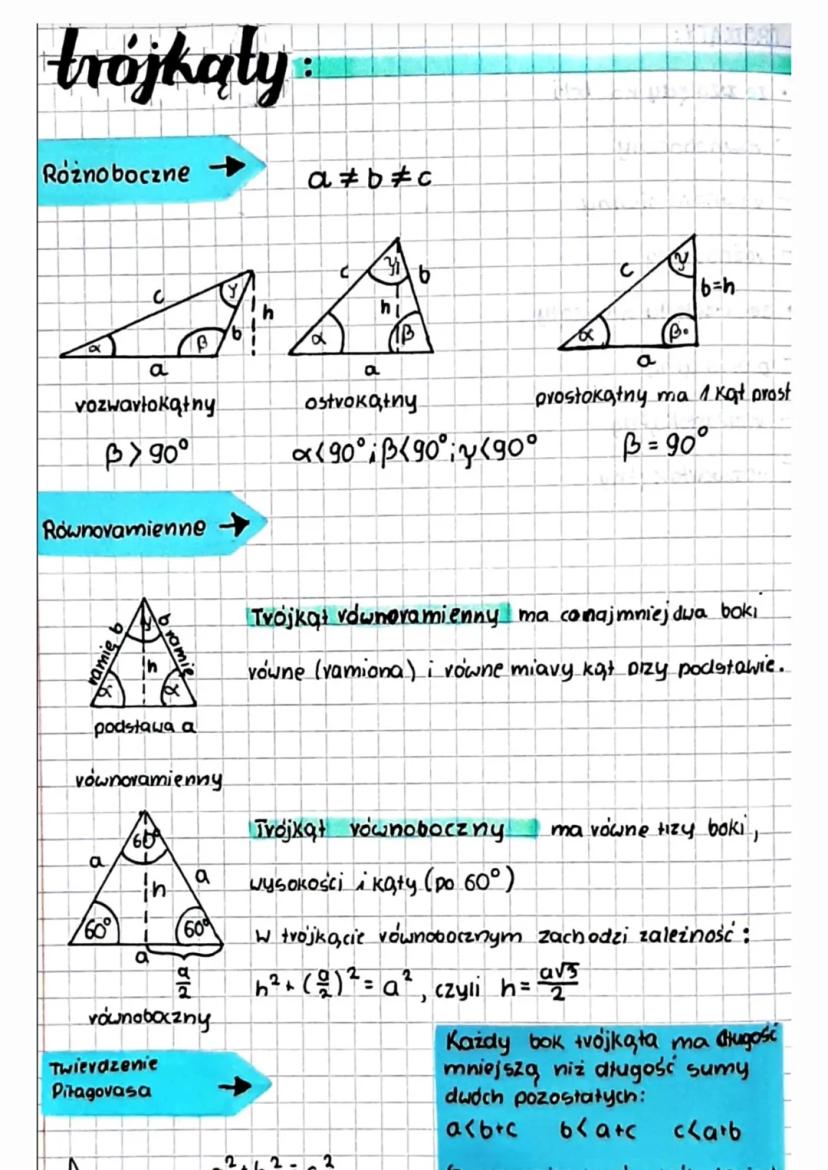 trójkąty:
Różnoboczne →
a ≠ b ≠ c
c γ h α β b a
c γ b h α β a
c γ b=h α β a
rozwartokątny
ostrokątny
prostokątny ma 1 kąt prost
β > 90°
α<90°; β<90°; γ<90°
β = 90°
Równoramienne →
ramię b γ b ramię
h
α α
podstawa a
równoramienny
Trójkąt równoramienny ma conajmniej dwa boki
równe (ramiona) i równe miary kąt przy podstawie.
60°
a h a
60° 60°
a
a/2
równoboczny
Trójkąt równoboczny ma równe trzy boki,
wysokości i kąty (po 60°)
W trójkącie równobocznym zachodzi zależność:
h² + (a/2)² = a², czyli h = a√3/2
Twierdzenie
Pitagorasa →
Każdy bok trójkąta ma długość
mniejszą niż długość sumy
dwóch pozostałych:
a<b+c b<a+c c<a+b
a²+b²=c²